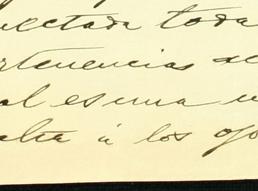 nectada toda
rtenencias de
al es una u
alta á los ojo